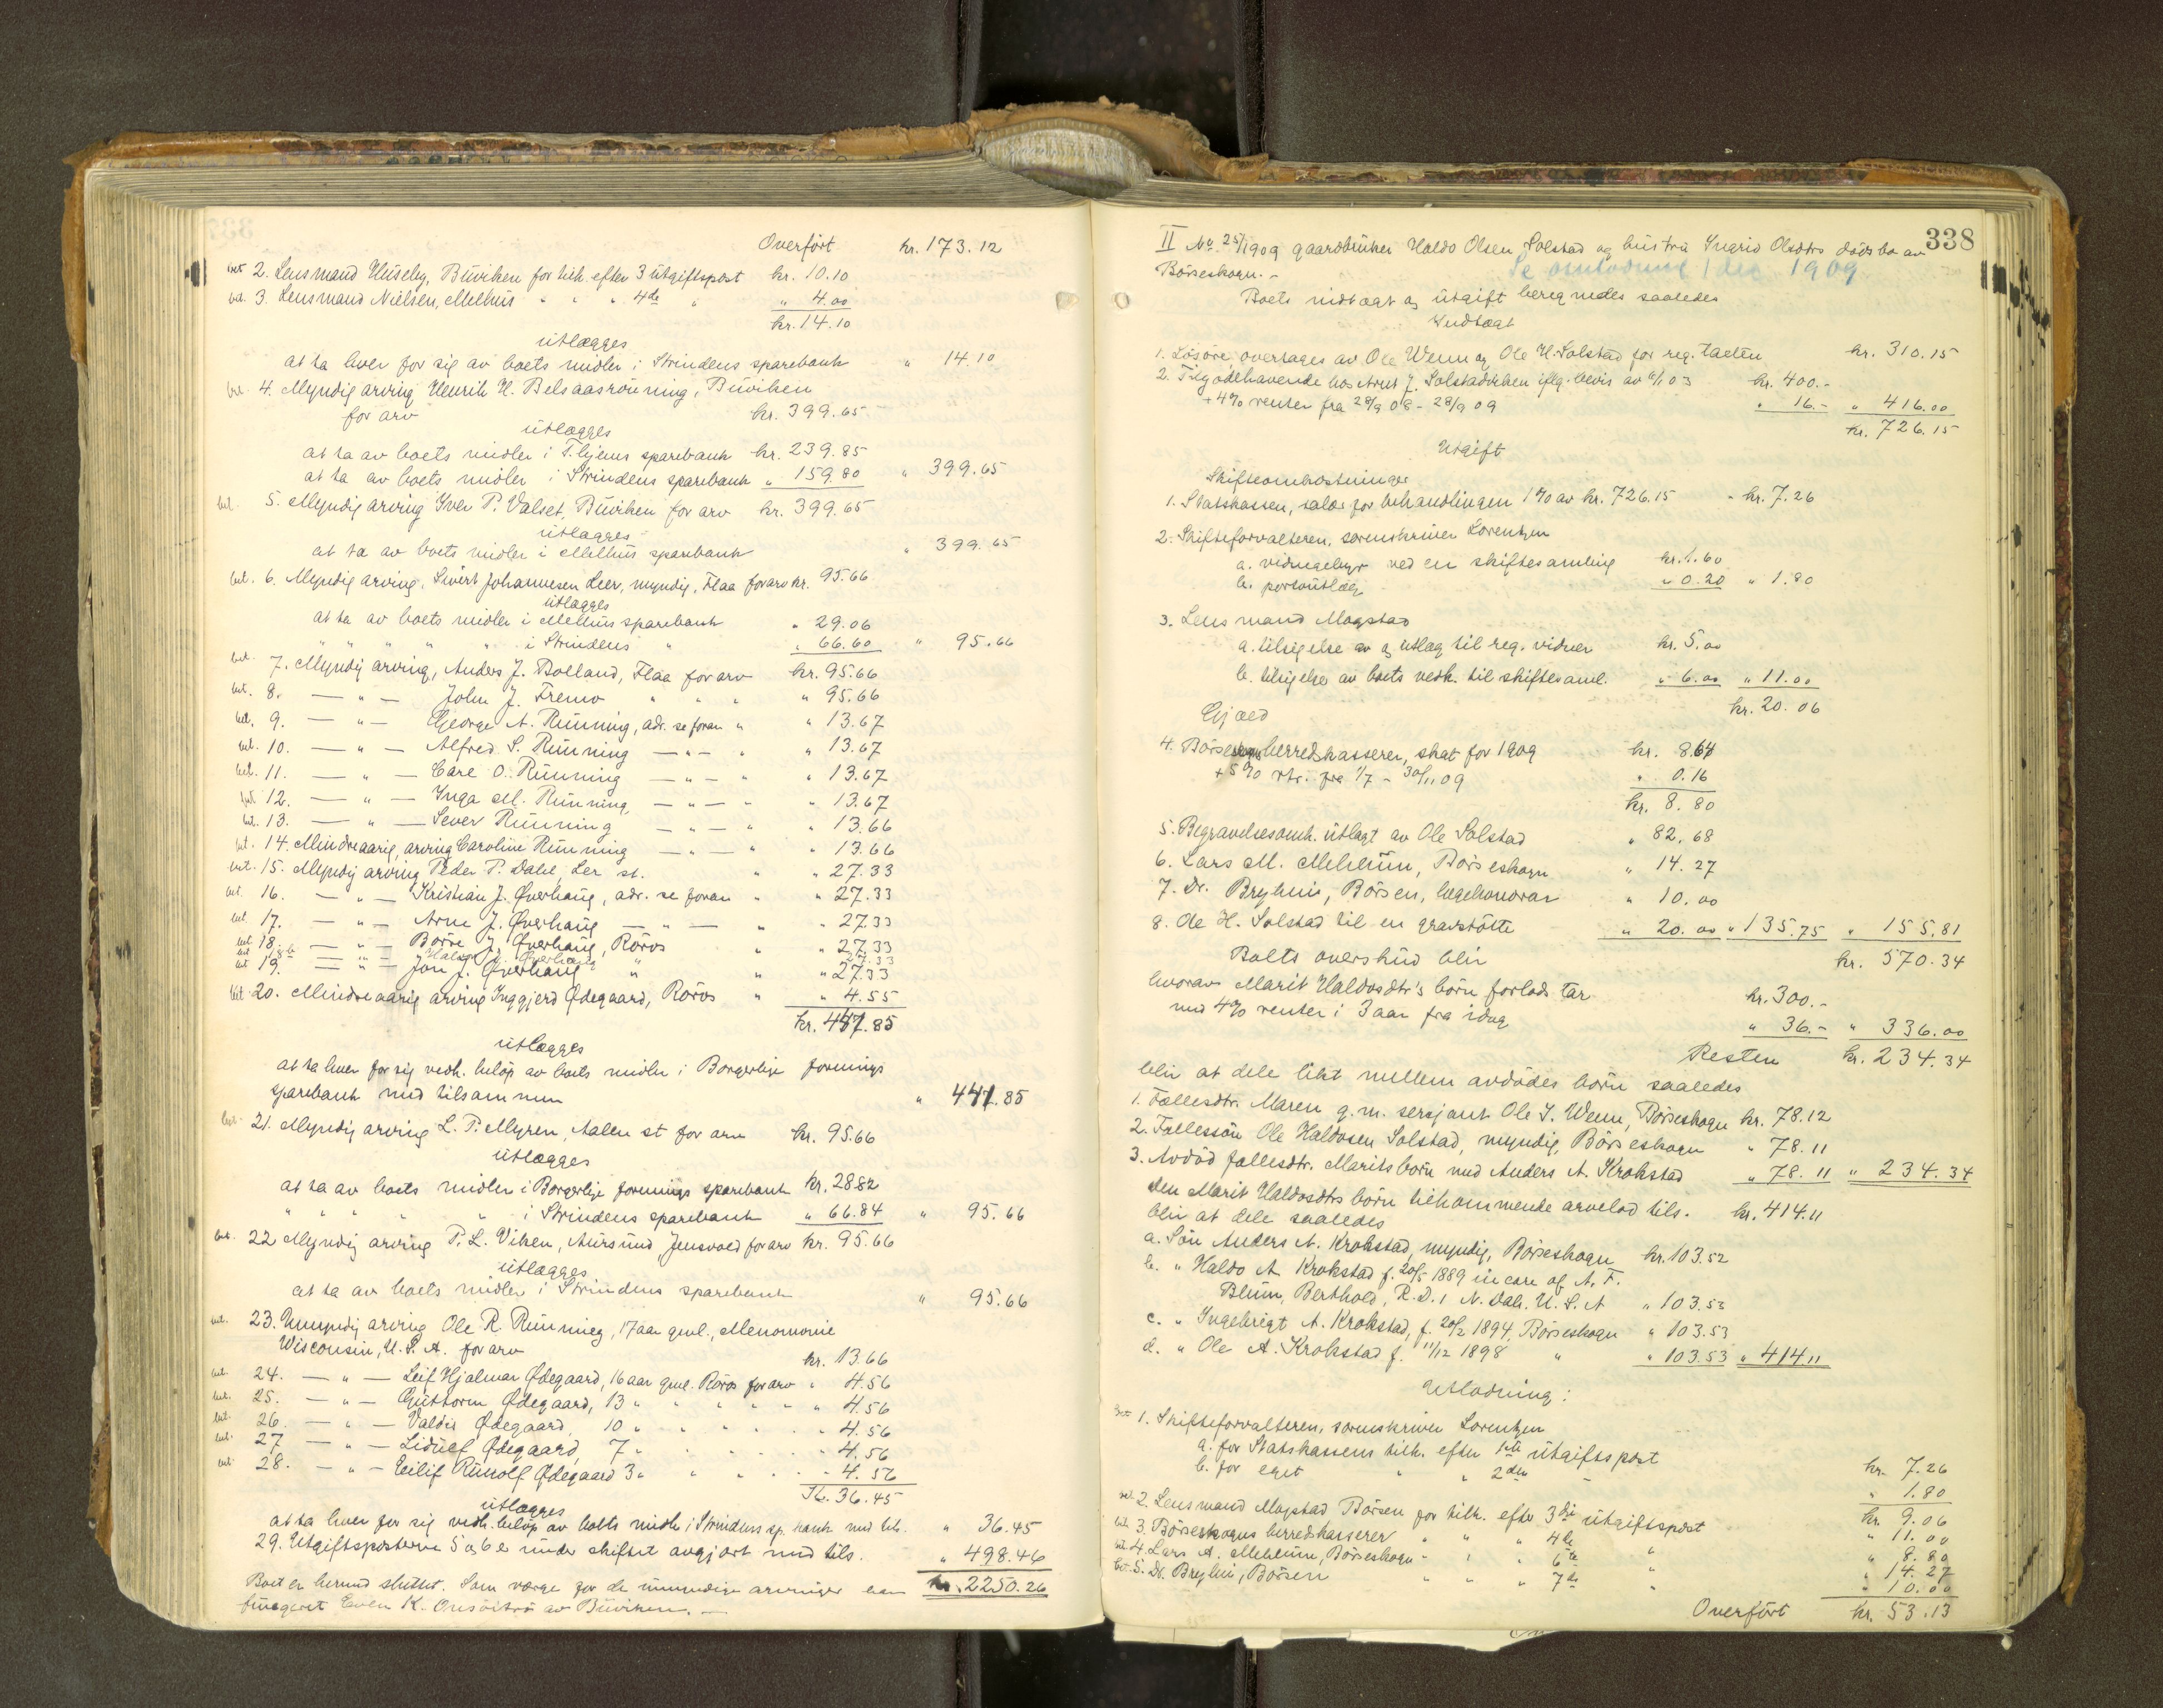 Overført kr. 173.12
bet. 2. Lensmand Huseby, Buviken for tilh. efter 3 utgiftspost kr. 10.10
bet. 3. Lensmand Nielsen, Melhus " " " 4de " " 4.00
kr. 14.10
utlægges
at ta hver for sig av boets midler i Strindens sparebank " 14.10
bet. 4. Myndig arving Henrik H. Belsaasrønning, Buviken
for arv kr. 399.65
utlægges
at ta av boets midler i T.hjems sparebank kr. 239.85
at ta av boets midler i Strindens sparebank " 159.80 " 399.65
bet. 5. Myndig arving Iver P. Valset, Buviken for arv kr. 399.65
utlægges
at ta av boets midler i Melhus sparebank " 399.65
bet. 6. Myndig arving, Sivert Johannesen Leer, myndig, Flaa for arv kr. 95.66
utlægges
at ta av boets midler i Melhus sparebank " 29.06
" " " " " i Strindens " " 66.60 " 95.66
bet. 7. Myndig arving, Anders J. Bolland, Flaa for arv kr. 95.66
bet. 8. — " — John J. Fremo " " " " 95.66
bet. 9. — " — George A. Rünning, adr. se foran " " 13.67
bet. 10. — " — Alfred S. Rünning — " — " " 13.67
bet. 11. — " — Carl O. Rünning — " — " " 13.67
bet. 12. — " — Inga M. Rünning, — " — " " 13.67
bet. 13. — " — Sever Rünning — " — " " 13.66
bet. 14. Mindreaarig arving Caroline Rünning — " — " " 13.66
bet. 15. Myndig arving Peder P. Dahl, Ler st. " " 27.33
bet. 16. — " — Kristian J. Øverhaug, adr. se foran " " 27.33
bet. 17. — " — Arne J. Øverhaug — " — " " 27.33
bet. 18. — " — Borre J. Øverhaug, Røros " " 27.33
bet. 18b — " — Halvor J. Øverhaug " 27.33
bet. 19. — " — Jon J. Øverhaug " " " 27.33
bet. 20. Mindreaarig arving Inggjerd Ødegaard, Røros " " 4.55
kr. 441.85
utlægges
at ta hver for sig vedk. beløp av boets midler i Borgerlige forenings
sparebank med tilsammen " 441.85
bet. 21. Myndig arving L. P. Myren, Aalen st for arv kr. 95.66
utlægges
at ta av boets midler i Borgerlige forenings sparebank kr. 28.82
" " " " " i Strindens sparebank " 66.84 " 95.66
bet. 22 Myndig arving P. L. Viken, Aursund, Jensvold for arv kr. 95.66
utlægges
at ta av boets midler i Strindens sparebank " 95.66
bet. 23. Umyndig arving Ole R. Rünning, 17 aar gml., Menomonie
Wisconsin, U.S.A. for arv kr. 13.66
bet. 24. — " — Leif Hjalmar Ødegaard, 16 aar gml. Røros for arv " 4.56
bet. 25. — " — Guttorm Ødegaard, 13 " " " " " " 4.56
bet. 26. — " — Valdis Ødegaard, 10 " " " " " 4.56
bet. 27 — " — Lidulf Ødegaard, 7 " " " " 4.56
bet. 28. — " — Eilif Runolf Ødegaard 3 " " " " " 4.56
kr. 36.45
utlægges
at ta hver for sig vedk. beløp av boets midler i Strindens sp.bank med tils. " 36.45
29. Utgiftsposterne 5 og 6 er under skiftet avgjort med tils. " 498.46
Boet er hermed sluttet. Som værge for de umyndige arvinger har kr. 2250.26
fungeret Even K. Onsøien av Buviken. —
338
II No. 25/1909 gaardbruker Haldo Olsen Solstad og hustru Ingrid Olsdtrs dødsbo av
Børseskogn. –
Se omlodning 1 dec 1909
Boets indtægt og utgift beregnedes saaledes
Indtægt
1. Løsøre, overtages av Ole Wenn og Ole H. Solstad for reg. taxten kr. 310.15
2. Tilgodehavende hos Arnt J. Solstadviken iflg. bevis av 6/1 03 kr. 400.-
+ 4% renter fra 28/9 08 - 28/9 09 " 16.- " 416.00
kr. 726.15
Utgift
Skifteomkostninger
1. Statskassen, salær for behandlingen 1% av kr. 726.15 - kr. 7.26
2. Skifteforvalteren, sorenskriver Lorentzen
a. vidnegebyr ved en skiftesamling kr. 1.60
b. portoutlæg " 0.20 " 1.80
3. Lensmand Mogstad
a. tilsigelse av og utlæg til reg. vidner kr. 5.00
b. tilsigelse av boets vedk. til skiftesaml. " 6.00 " 11.00
kr. 20.06
Gjæld
4. Børseskogns herredskasserer, skat for 1909 kr. 8.64
+ 5% rtr. fra 1/7 - 30/11 09 " 0.16
kr. 8.80
5. Begravelsesomk. utlagt av Ole Solstad " 82.68
6. Lars M. Mehlum, Børseskogn " 14.27
7. Dr. Bryhni, Børsen, lægehonorar " 10.00
8. Ole H. Solstad til en gravstøtte " 20.00 " 135.75 " 155.81
Boets overskud blir kr. 570.34
hvorav Marit Haldosdtr's børn forlods tar kr. 300.-
med 4% renter i 3 aar fra idag " 36.- " 336.00
Resten kr. 234.34
blir at dele likt mellem avdødes børn saaledes
1. Fællesdtr. Maren g.m. sersjant Ole J. Wenn, Børseskogn kr. 78.12
2. Fællessøn Ole Haldosen Solstad, myndig, Børseskogn " 78.11
3. Avdød fællesdtr. Marits børn med Anders A. Krokstad " 78.11 " 234.34
Den Marit Haldosdtrs børn tilkommende arvelod tils. kr. 414.11
blir at dele saaledes
a. Søn Anders A. Krokstad, myndig, Børseskogn kr. 103.52
b. " Haldo A. Krokstad f. 20/5 1889 in care of A. F.
Blum, Berthold, R.D. 1 N. Dak. U.S.A " 103.53
c. " Ingebrigt A. Krokstad, f. 20/2 1894, Børseskogn " 103.53
d. " Ole A. Krokstad f. 11/12 1898 " " 103.53 " 414.11
Utlodning:
bet. 1. Skifteforvalteren, sorenskriver Lorentzen
a. for Statskassens tilh. efter 1ste utgiftspost kr. 7.26
b. for eget " " 2den — " 1.80
kr. 9.06
bet. 2. Lensmand Mogstad Børsen for tilh. efter 3die utgiftspost " 11.00
bet. 3. Børseskogns herredskasserer " " " 4de " " 8.80
bet. 4. Lars M. Mehlum, Børseskogn " " " 6te " " 14.27
bet. 5. Dr. Bryhni, Børsen " " " 7de " " 10.00
Overført kr. 53.13